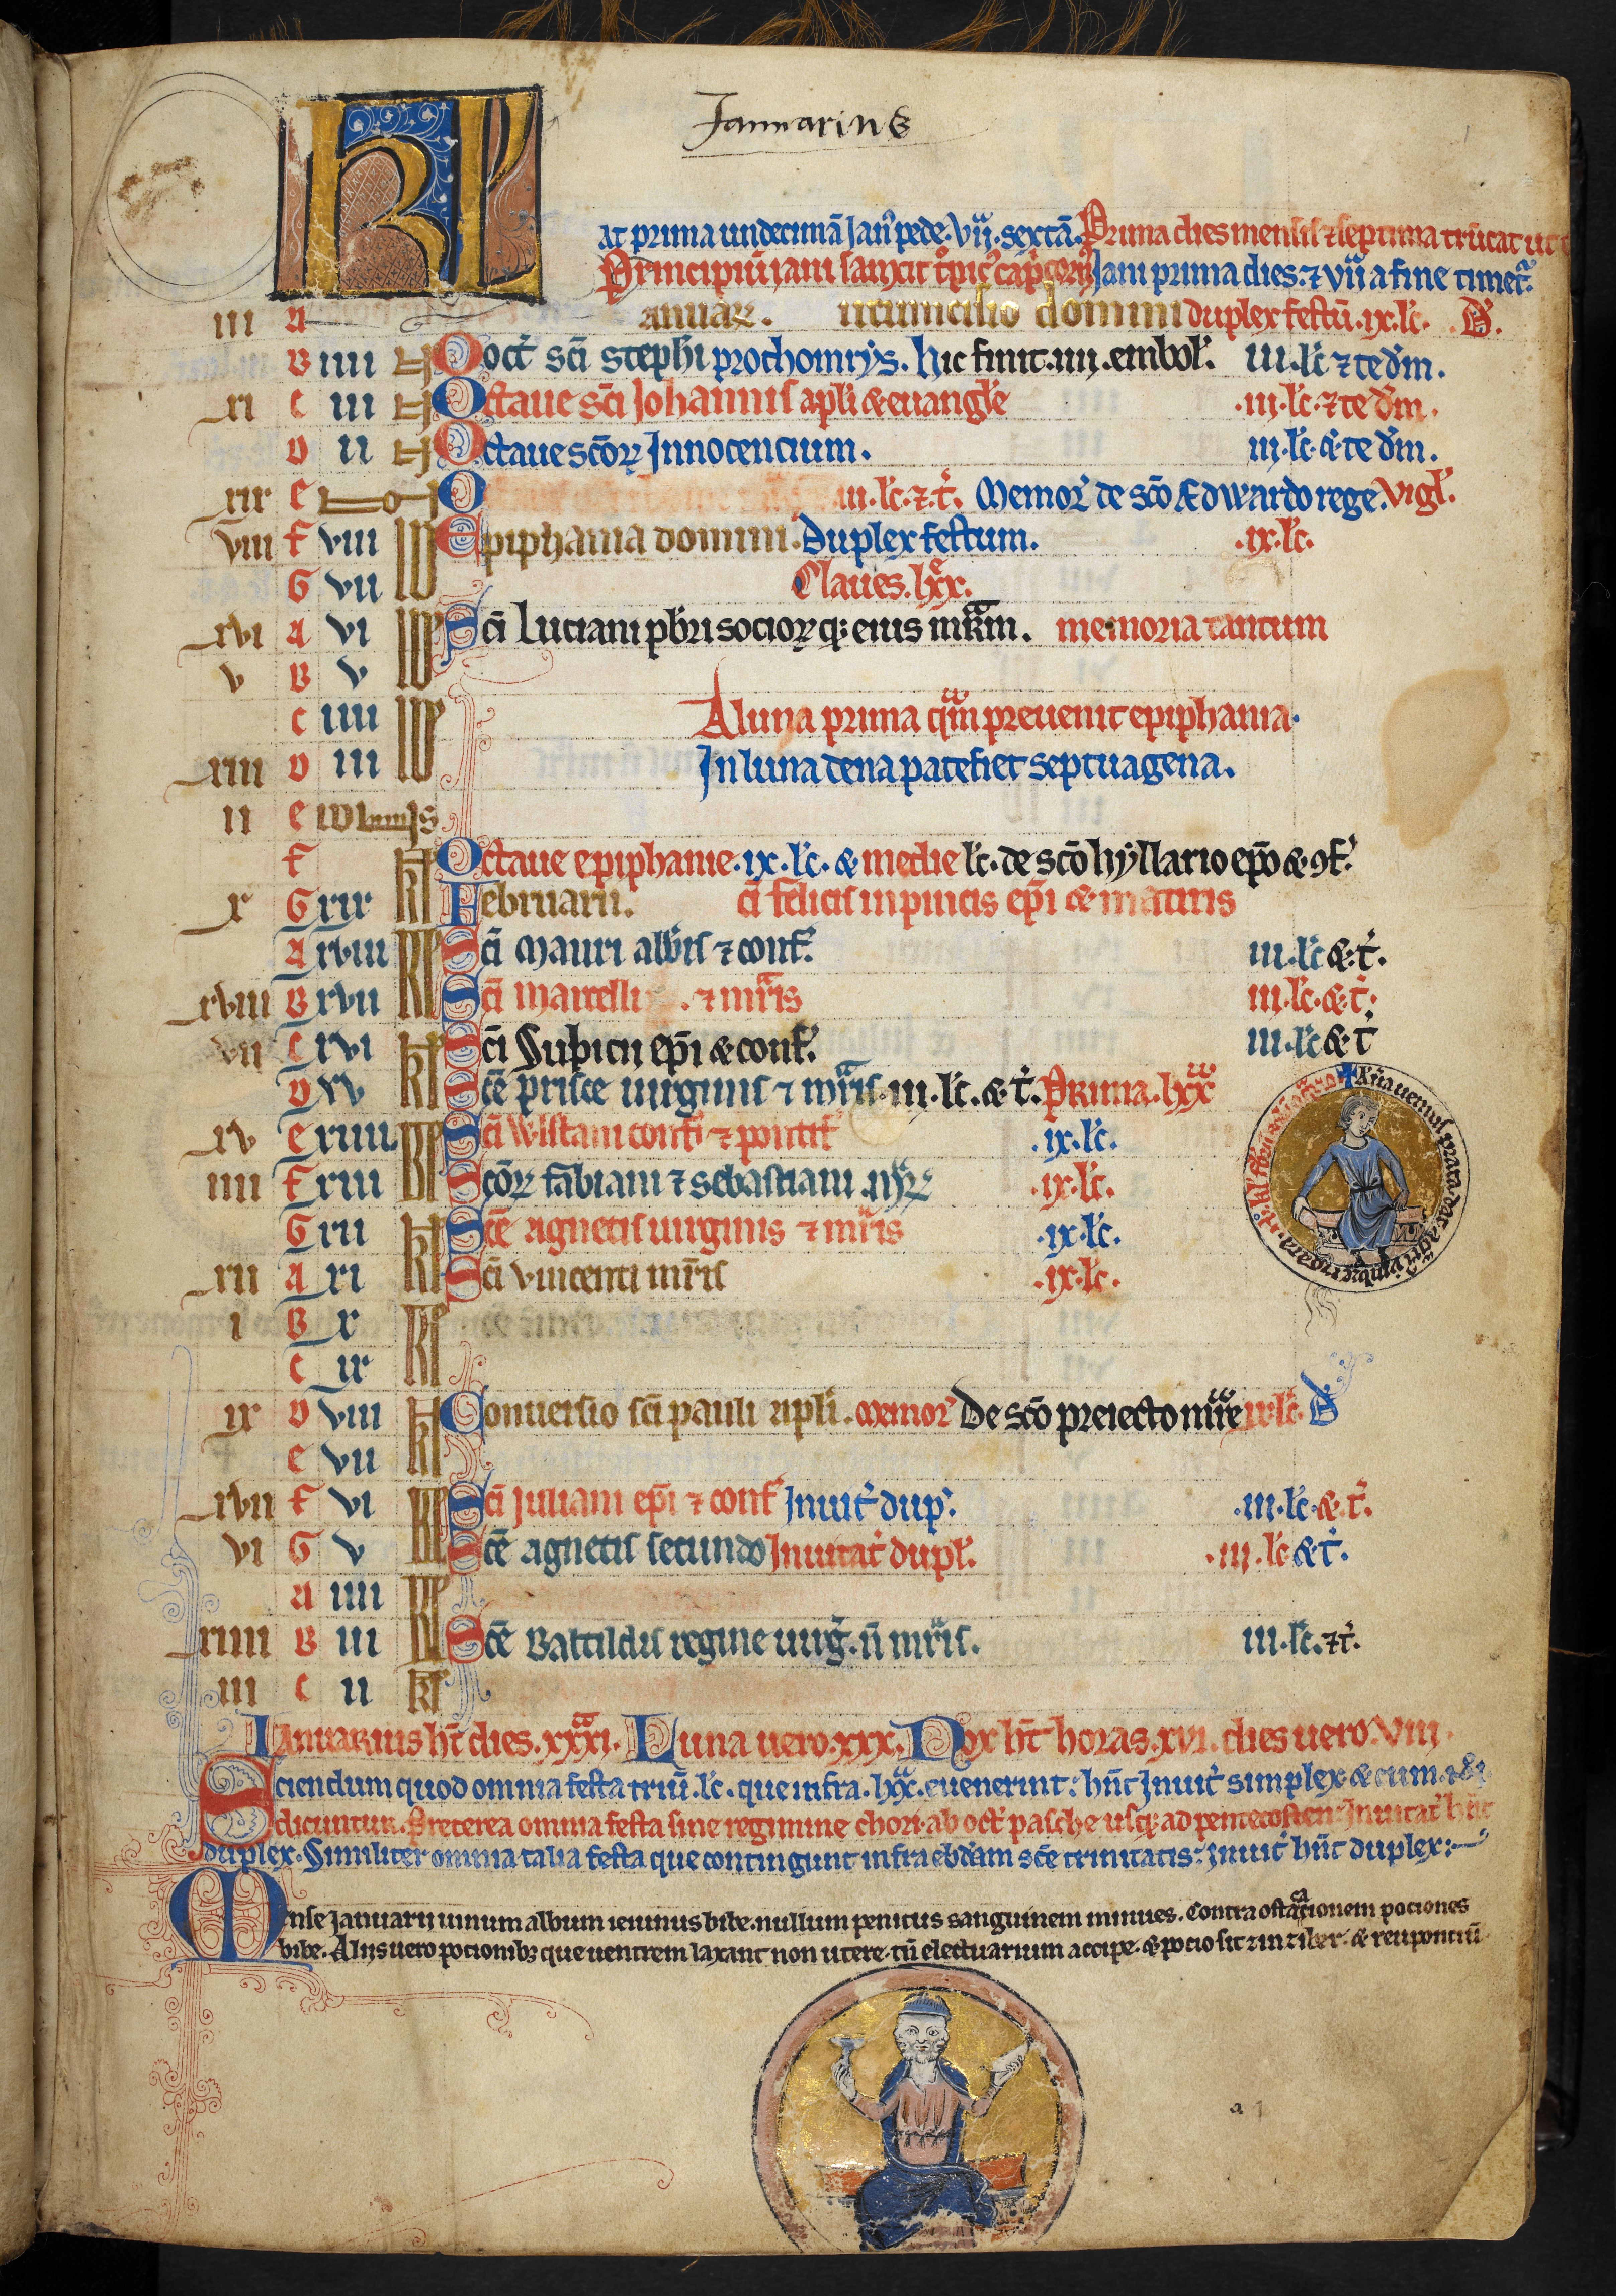 Januarius
KL
at prima undecimā Jan' pede. Vij. sextā. Prima dies mensis ⁊ septima trūcat ut
Principiū iani sancit t̾pic' cap̾corn' Jani prima dies. ⁊ vij a fine timet'.
iii A anuar̄. domini duplex festū. ix. lc̄.
B iiii N Oct' sc̄i steph'i prothom̄rȳs. hic finit .iiij. embol'. iii. lc̄ ⁊ te dm̄.
xi C iii N Octaue sc̄i Johannis apl'i & euangl'e .iij. lc̄. ⁊ te dm̄.
D ii N Octaue sc̄or̄ Innocencium. iij. lc̄. & te dm̄.
xix E O iii. lc̄. ⁊. t̄. Memor' de sc̄o Ædwardo rege. Vigl'.
viii F viii id Epiphania domini. Duplex festum. .ix. lc̄.
G vii id Claues. lxx.
xvi A vi id Sc̄i Luciani pb̄ri socior̄ q; eius mr̄m. memoria tantum
v B v id
C iiii id A luna prima qm̄ preuenit epiphania.
xiii D iii id In luna dena patefiet septuagena.
ii E
F Octaue epiphanie. ix. lc̄. & medie lc̄. de sc̄o hẏllario ep̄o & 9f'.
x G xix kl Februarii. ci felicis in pincis ep̄i & martiris
A xviii kl Sc̄i Mauri abb̄is ⁊ conf'. iii. lc̄ & t̄.
xviii B xvii kl Sc̄i Marcelli . ⁊ mr̄is iii. lc̄. & t̄.
vii C xvi kl Sc̄i Sulpicii ep̄i & conf'. iii. lc̄ & t̄
D xv kl Sc̄e prisce uirginis ⁊ mr̄is. iii. lc̄. & t̄. Prima. lxx
xv E xiiii kl Sc̄i Wlstani conf' ⁊ pontif' .ix. lc̄.
iiii F xiii kl Sc̄or̄ fabiani ⁊ sebastiani .mr̄ .ix. lc̄.
G xii kl Sc̄e agnetis uirginis ⁊ mr̄is .ix. lc̄.
xii A xi kl Sc̄i vincenti mr̄is .ix. lc̄.
i B x kl
C ix kl
ix D viii kl Conuersio sc̄i pauli apl'i. memor' De sc̄o preiecto mr̄e ix. lc̄. D
E vii kl
xvii F vi kl Sc̄i Juliani ep̄i ⁊ conf' Inuit' dup'. .iii. lc̄. & t̄.
vi G v kl Sc̄e agnetis secundo Inuitat' dupl'. .iii. lc̄ & t̄.
A iiii kl
xiiii B iii kl Sc̄e Batildis regine uirg'. n̄ mr̄is. iii. lc̄. ⁊ t̄.
iii C ii kl
Ianuarius ht̄ dies. xxxi. Luna uero. xxx. Nox ht̄ horas. xvi. dies uero. Viii.
Sciendum quod omnia festa triū. lc̄. que infra. lxx. euenerint: hn̄t Inuit' simplex & cum
dicuntur. Preterea omnia festa sine regimine chori. ab oct' pasche usq; ad pentecosten: Inuitat' hn̄t
duplex. Similiter omnia talia festa que contingunt infra ebd'am sc̄e trinitatis: Inuit' hn̄t duplex:
Mense Januarii uinum album ieiunus bibe. nullum penitus sanguinem minues. Contra pociones
bibe. Aliis uero pocionib; que uentrem laxant non utere. tū electuarium accipe. & pocio sit zinziber. & reuponciū